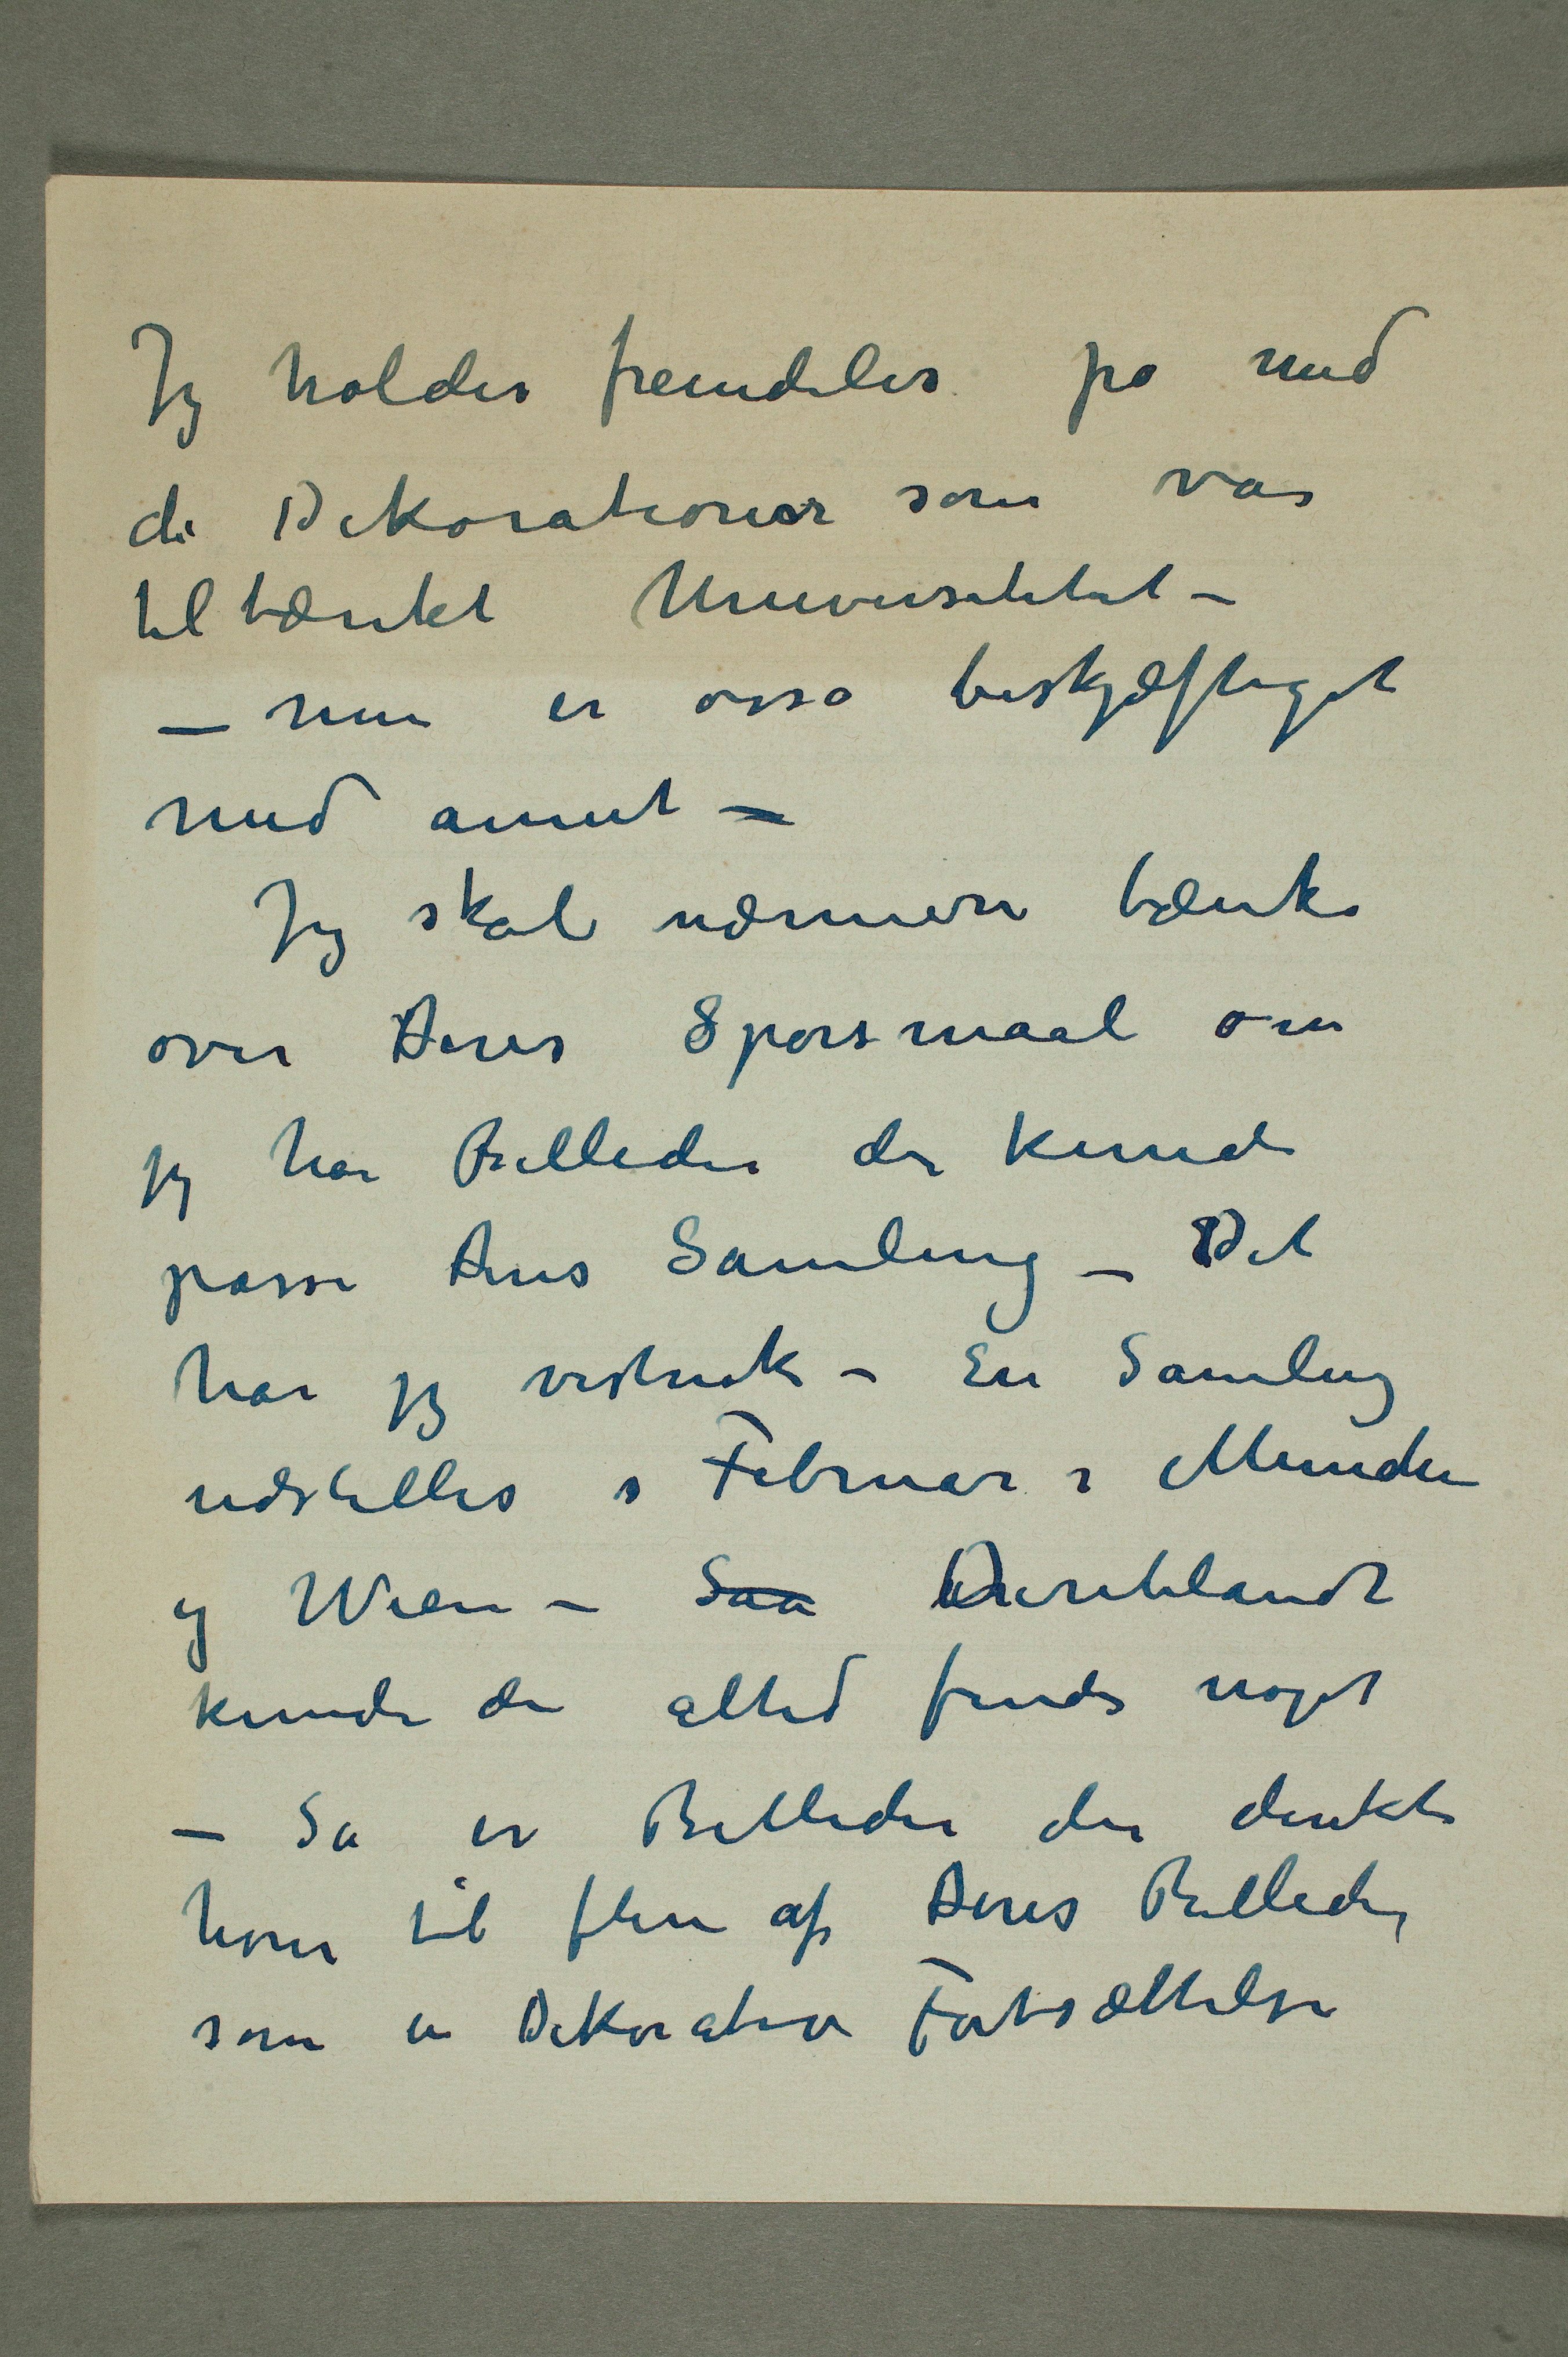 Jeg holder fremdeles på med
de Dekorationer som var
tiltænkt Universitetet –
– men er osså beskjæftiget
med annet –
Jeg skal nærmere tænke
over Deres Spørsmaal om
jeg har Billeder der kunde
passe Deres Samling – Det
har jeg vistnok – En Samling
udstilles i Februar i Münchn
og Wien – Saa Deriblandt
kunde der altid findes noget
– Så er Billeder der direkte
hører til flere af Deres Billeder
som en Dekorativ Fortsættelse